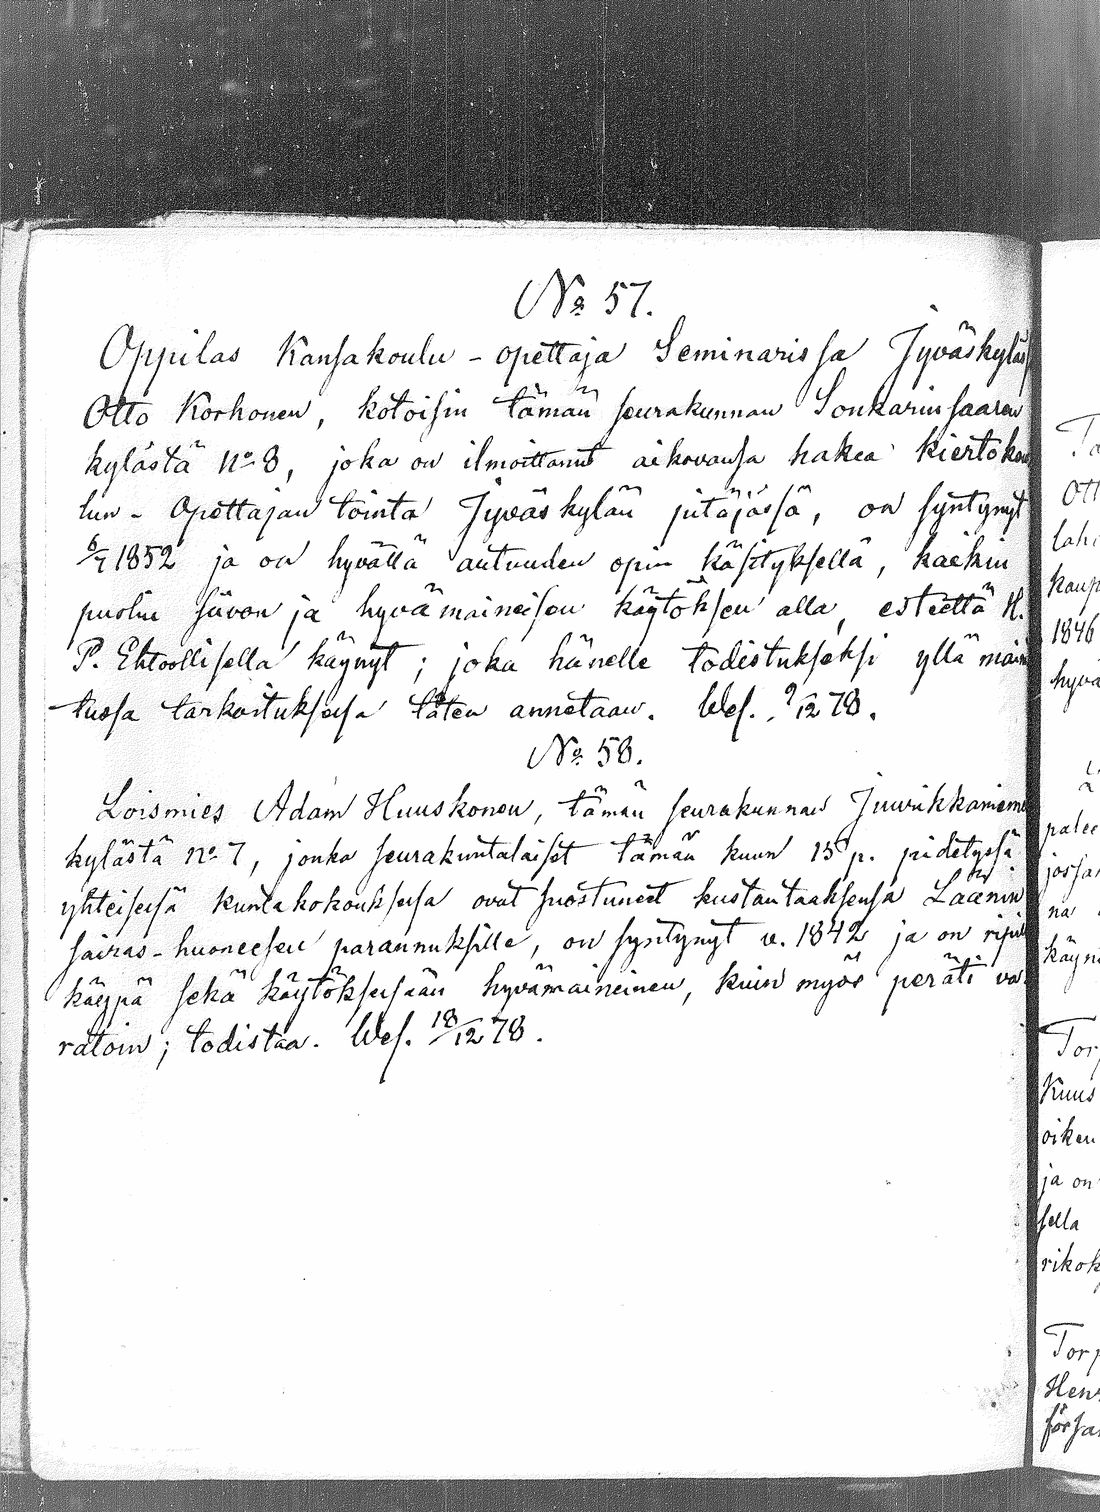 No 57.
Oppilas Kansakoulu-opettaja Seminarissa Jyväskyläs
Otto Korhonen, kotoisin tämän seurakunnan Sonkarinsaaren
kylästä No 8, joka on ilmoittanut aikovansa hakea kiertokou
lun-Opettajan tointa Jyväskylän pitäjässä, on syntynyt
6/7 1852 ja on hyvällä autuuden opin käsityksellä, kaikin
puolin siivon ja hyvämaineisen käytöksen alla, esteettä H.
P. Ehtoollisella käynyt; joka hänelle todistukseksi yllä main
tussa tarkoituksessa täten annetaan. Wes. 9/12 78.
No 58.
Loismies Adam Huuskonen, tämän seurakunnan Juurikkaniemen
kylästä No 7, jonka seurakuntalaiset tämän kuun 15 p. pidetyssä
yhteisessä kuntakokouksessa ovat suostuneet kustantaaksensa Läänin
sairas-huoneesen parannuksille, on syntynyt v. 1842 ja on ripill
käypä sekä käytöksessään hyvämaineinen, kuin myös peräti va
ratoin; todistaa. Wes. 18/12 78.
Ott
lahi
kaup
1846
hyvä
palee
jossa
na
käyn
Torp
Kuus
oiken
ja on
sella
rikok
Torp
Hen